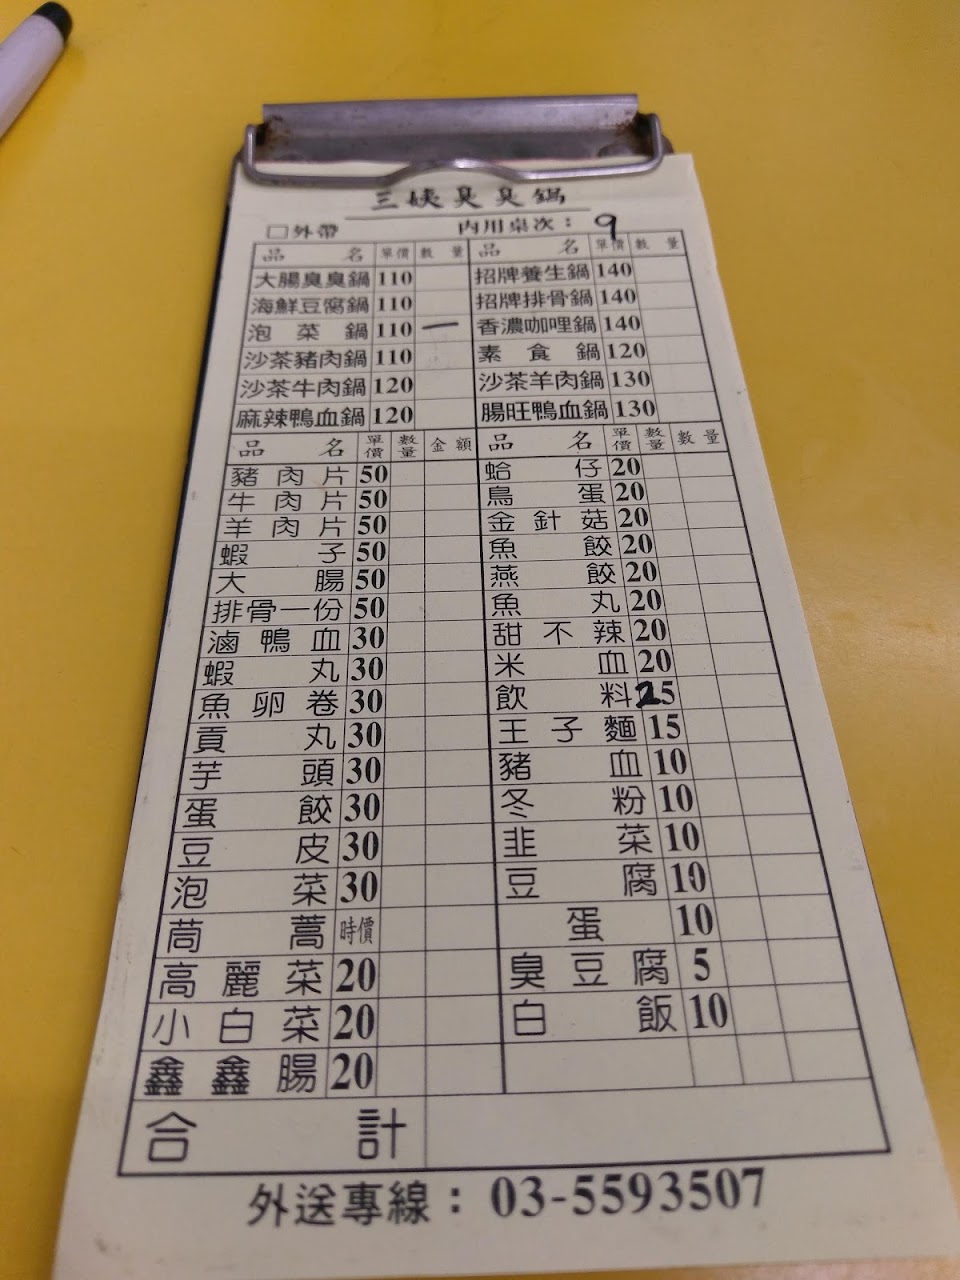 三姨臭臭鍋
□外帶 內用桌次：9
品名 單價 數量 品名 單價 數量
大腸臭臭鍋 110 招牌養生鍋 140
海鮮豆腐鍋 110 招牌排骨鍋 140
泡菜鍋 110 一 香濃咖哩鍋 140
沙茶豬肉鍋 110 素食鍋 120
沙茶牛肉鍋 120 沙茶羊肉鍋 130
麻辣鴨血鍋 120 腸旺鴨血鍋 130
品名 單價 數量 金額 品名 單價 數量 數量
豬肉片 50 蛤仔 20
牛肉片 50 鳥蛋 20
羊肉片 50 金針菇 20
蝦子 50 魚餃 20
大腸 50 燕餃 20
排骨一份 50 魚丸 20
滷鴨血 30 甜不辣 20
蝦丸 30 米血 20
魚卵卷 30 飲料 25
貢丸 30 王子麵 15
芋頭 30 豬血 10
蛋餃 30 冬粉 10
豆皮 30 韭菜 10
泡菜 30 豆腐 10
茼蒿 時價 蛋 10
高麗菜 20 臭豆腐 5
小白菜 20 白飯 10
鑫鑫腸 20
合計
外送專線：03-5593507